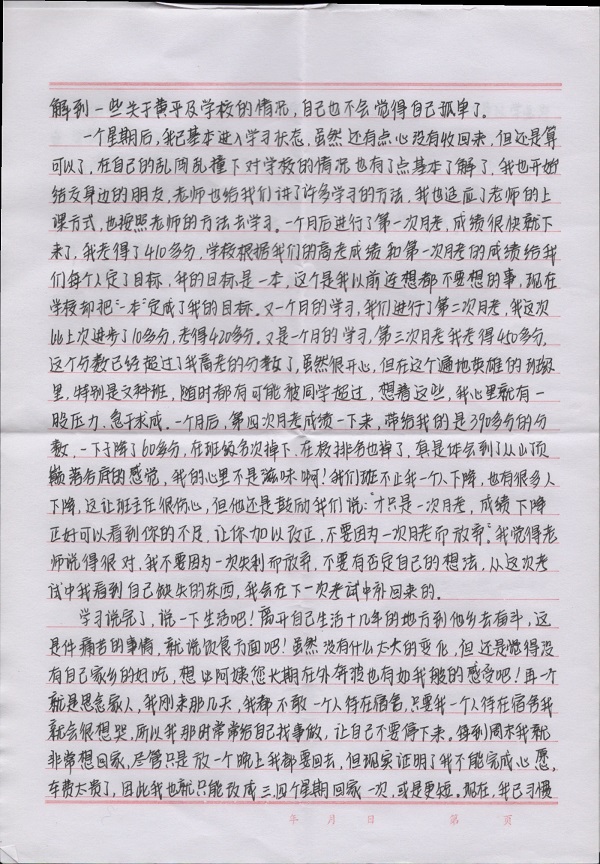 解到一些关于黄平及学校的情况，自己也不会觉得自己孤单了。
一个星期后，我已基本进入学习状态，虽然还有点心没有收回来，但还是算
可以了，在自己的乱闯乱撞下对学校的情况也有了点基本了解了，我也开始
结交身边的朋友，老师也给我们讲了许多学习的方法，我也适应了老师的上
课方式，也按照老师的方法去学习。一个月后进行了第一次月考，成绩很快就下
来了，我考得了410多分，学校根据我们的高考成绩和第一次月考的成绩给我
们每个人定了目标，我的目标是一本，这个是我以前连想都不要想的事，现在
学校却把“一本”定成了我的目标。又一个月的学习，我们进行了第二次月考，我这次
比上次进步了10多分，考得420多分。又是一个月的学习，第三次月考我考得450多分，
这个分数已经超过了我高考的分数了，虽然很开心，但在这个遍地英雄的班级
里，特别是文科班，随时都有可能被同学超过，想着这些，我心里就有一
股压力，急于求成。一个月后，第四次月考成绩一下来，带给我的是390多分的分
数，一下子降了60多分，在班级名次掉下，在校排名也掉了，真是体会到了从山顶
巅落谷底的感觉，我的心里不是滋味啊！我们班不止我一个人下降，也有很多人
下降，这让班主任很伤心，但他还是鼓励我们说：“才只是一次月考，成绩下降
正好可以看到你的不足，让你加以改正，不要因为一次月考而放弃。”我觉得老
师说得很对，我不要因为一次失利而放弃，不要有否定自己的想法，从这次考
试中我看到自己缺失的东西，我会在下一次考试中补回来的。
学习说完了，说一下生活吧！离开自己生活十几年的地方到他乡去奋斗，这
是件痛苦的事情，就说饮食方面吧！虽然没有什么太大的变化，但还是觉得没
有自己家乡的好吃，想必阿姨您长期在外奔波也有如我般的感受吧！再一个
就是思念家人，我刚来那几天，我都不敢一个人待在宿舍，只要我一个人待在宿舍我
就会很想哭，所以我那时常常给自己找事做，让自己不要停下来，每到周末我就
非常想回家，尽管只是放一个晚上我都要回去，但现实证明了我不能完成心愿，
车费太贵了，因此我也就只能改成三、四个星期回家一次，或是更短。现在，我已习惯
年 月 日 第 页